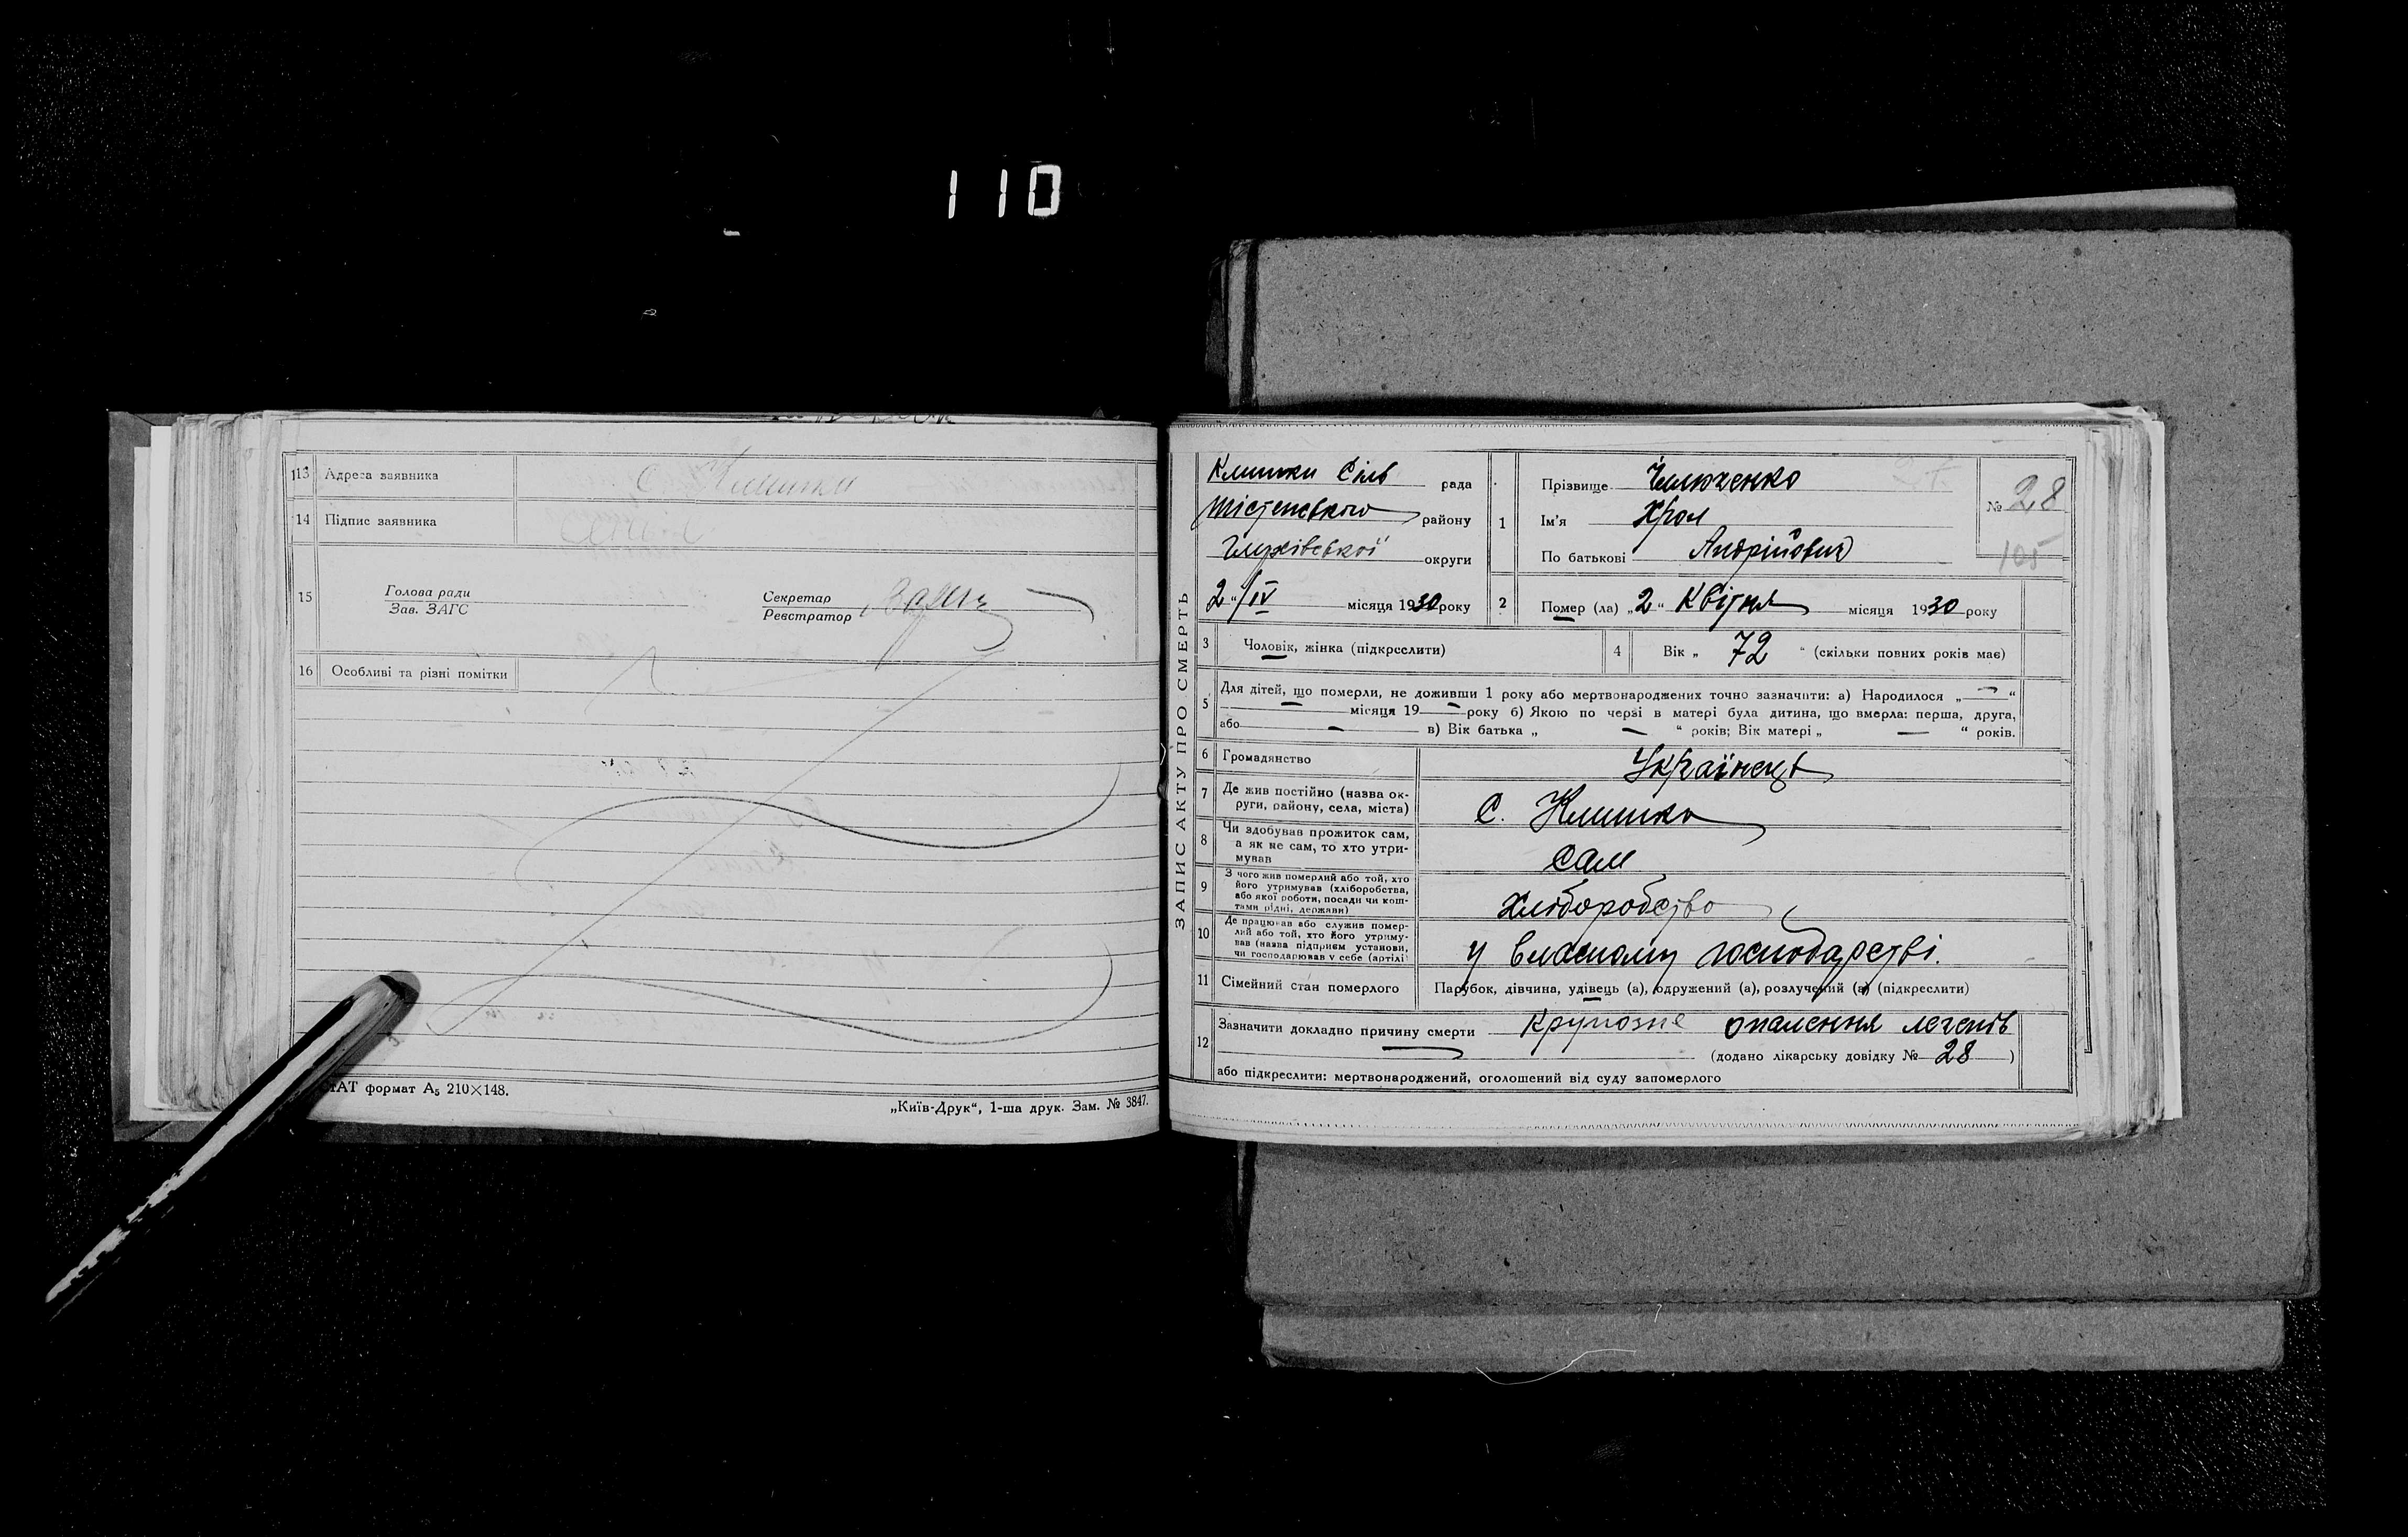 110
13 Адреса заявника с Клишки
14 Підпис заявника
15 Голова ради
Зав. ЗАГС
Секретар
Реєстратор
16 Особливі та різні помітки
ТАТ формат А5 210×148.
„Київ-Друк“, 1-ша друк. Зам. № 3847.
ЗАПИС АКТУ ПРО СМЕРТЬ
Клишки Сіль рада
району
Глухівської округи
2 “/IV місяця 1930 року
1 Прізвище
Ім'я Хрол
По батькові Андрійович
№ 28
105
2 Помер (ла) „2“ Квітня місяця 1930 року
3 Чоловік, жінка (підкреслити)
4 Вік „ 72 “ (скільки повних років має)
5 Для дітей, що померли, не доживши 1 року або мертвонароджених точно зазначити: а) Народилося „ — “
— місяця 19 — року б) Якою по черзі в матері була дитина, що вмерла: перша, друга,
або — в) Вік батька „ — “ років; Вік матері „ — “ років.
6 Громадянство Українець
7 Де жив постійно (назва ок-
руги, району, села, міста) С. Клишки
8 Чи здобував прожиток сам,
а як не сам, то хто утри-
мував сам
9 З чого жив померлий або той, хто
його утримував (хліборобства,
або якої роботи, посади чи кош-
тами рідні, держави) Хліборобство
10 Де працював або служив помер-
лий або той, хто його утриму-
вав (назва підприєм установи,
чи господарював у себе (артілі) у власному господарстві.
11 Сімейний стан померлого Парубок, дівчина, удівець (а), одружений (а), розлучений (а) (підкреслити)
12 Зазначити докладно причину смерти Крупозне опалення легенів
(додано лікарську довідку № 28 )
або підкреслити: мертвонароджений, оголошений від суду запомерлого